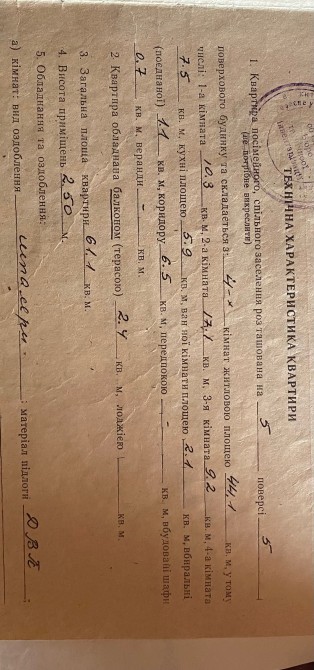 ТЕХНІЧНА ХАРАКТЕРИСТИКА КВАРТИРИ
(де потрібне викреслити)
1. Квартира посімейного, спільного заселення розташована на 5 поверсі 5
поверхового будинку та складається з: 4-х кімнат житловою площею 44,1 кв. м, у тому
числі: 1-а кімната 10,3 кв. м, 2-а кімната 17,1 кв. м, 3-я кімната 9,2 кв. м, 4-а кімната
7.5 кв. м, кухні площею 5.9 кв. м, ванної кімнати площею 2.1 кв. м, вбиральні
(поєднаної) 1.1 кв. м, коридору 6.5 кв. м, передпокою - кв. м, вбудовані шафи
0.7 кв. м, веранди - кв. м.
2. Квартира обладнана балконом (терасою) 2.4 кв. м, лоджією кв. м.
3. Загальна площа квартири 61.1 кв. м.
4. Висота приміщень 2.50 м.
5. Обладнання та оздоблення:
а) кімнат: вид оздоблення шпалери. ; матеріал підлоги ДВП ;